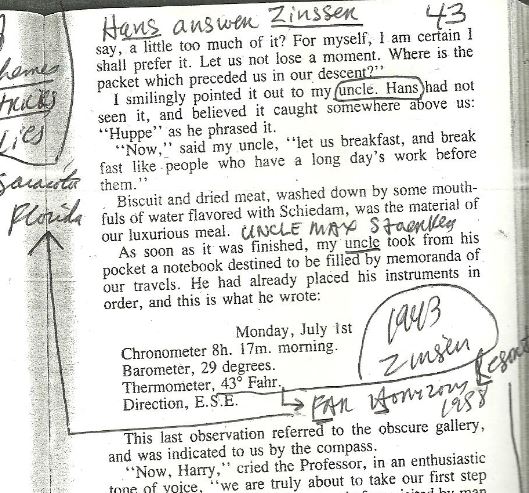 Hans answer Zinssen 43
say, a little too much of it? For myself, I am certain I
shall prefer it. Let us not lose a moment. Where is the
packet which preceded us in our descent?"
I smilingly pointed it out to my uncle. Hans had not
seen it, and believed it caught somewhere above us:
"Huppe" as he phrased it.
"Now," said my uncle, "let us breakfast, and break
fast like people who have a long day's work before
them."
Biscuit and dried meat, washed down by some mouth-
fuls of water flavored with Schiedam, was the material of
our luxurious meal. UNCLE MAX
As soon as it was finished, my uncle took from his
pocket a notebook destined to be filled by memoranda of
our travels. He had already placed his instruments in
order, and this is what he wrote:
Monday, July 1st
Chronometer 8h. 17m. morning.
Barometer, 29 degrees.
Thermometer, 43° Fahr.
Direction, E.S.E.
This last observation referred to the obscure gallery,
and was indicated to us by the compass.
"Now, Harry," cried the Professor, in an enthusiastic
tone of voice, "we are truly about to take our first step
hemes
tricks
lies
Sarasota
Florida
1943
Zinsen
FAR Horizons Resort
1958